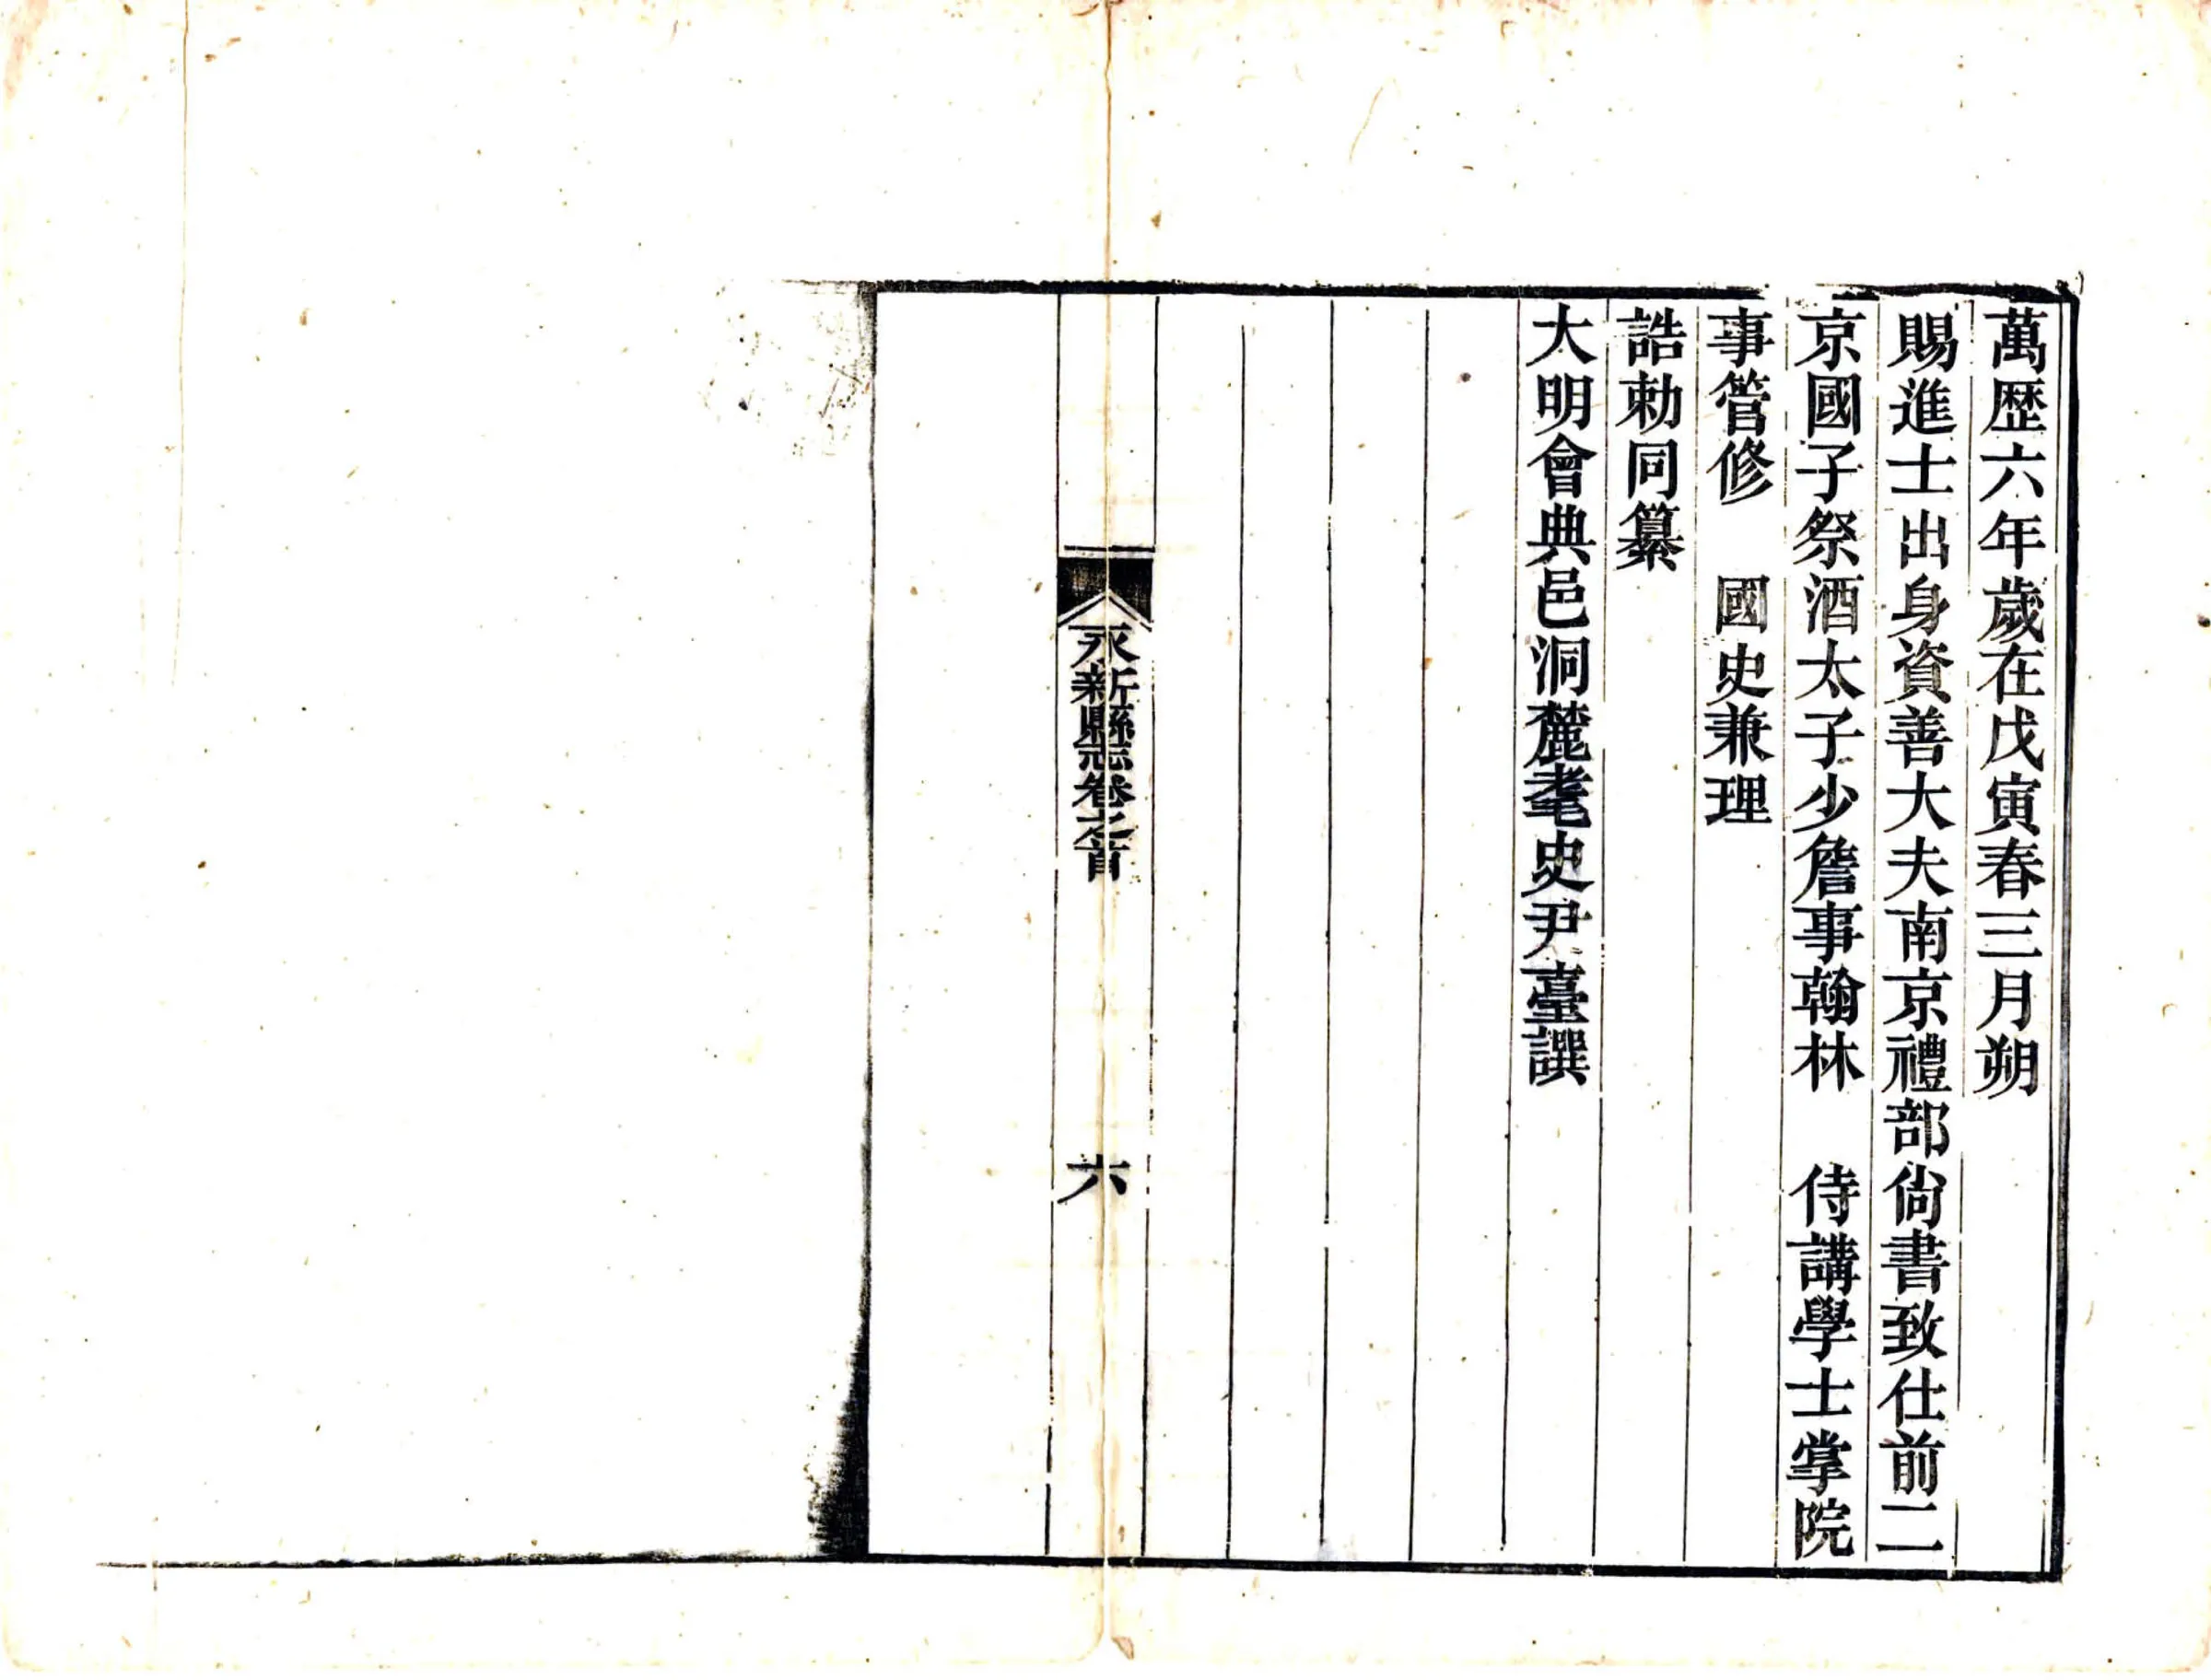 萬歴六年歲在戊寅春三月朔
賜進士出身資善大夫南京禮部尙書致仕前二
京國子祭酒太子少詹事翰林　侍講學士掌院
事管修　國史兼理
誥勅同纂
大明會典邑洞麓耄史尹臺譔
永新縣志卷之首
六